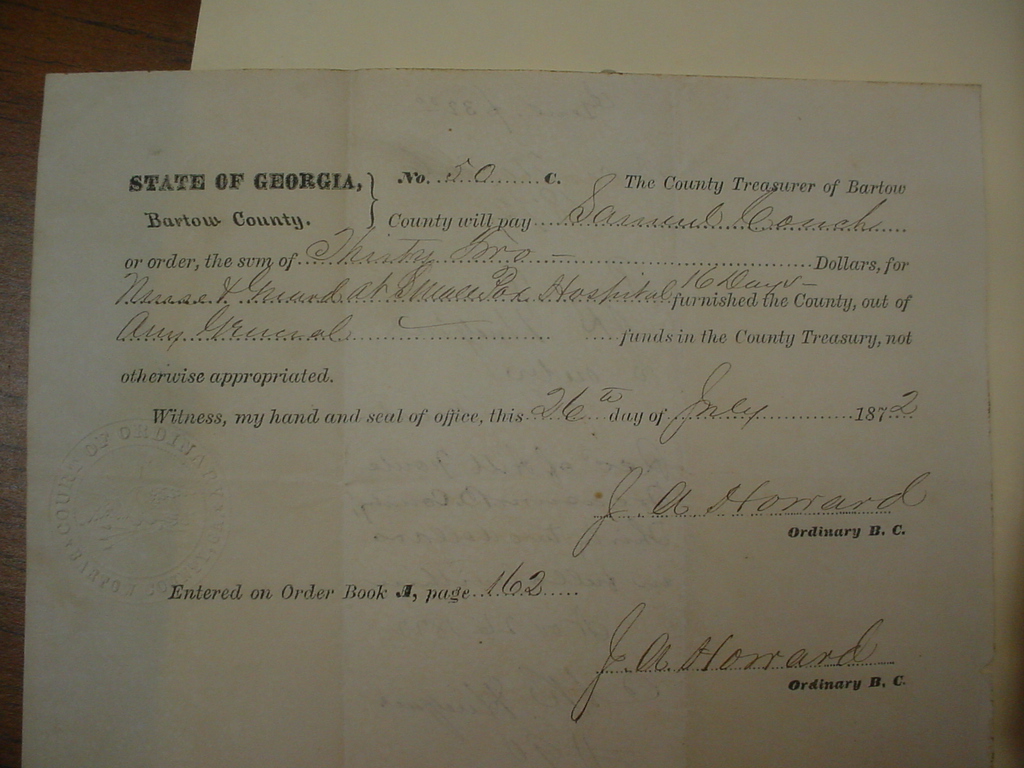 STATE OF GEORGIA, No. 50 C. The County Treasurer of Bartow
Bartow County. County will pay Samuel
or order, the sum of Thirty Two Dollars, for
Nurse & Guard at Small Pox Hospital 16 Days furnished the County, out of
Any General funds in the County Treasury, not
otherwise appropriated.
Witness, my hand and seal of office, this 26th day of July 1872
J. A Howard
Ordinary B. C.
COURT OF ORDINARY
Entered on Order Book A, page 162
J A Howard
Ordinary B. C.